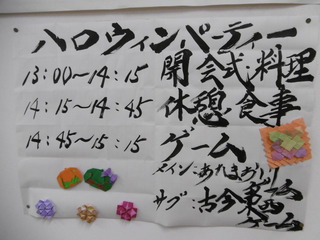 ハロウィンパーティー
13:00~14:15 開会式・料理
14:15~14:45 休憩・食事
14:45~15:15 ゲーム
メイン:あれまあ
サブ:古今東西
ゲーム